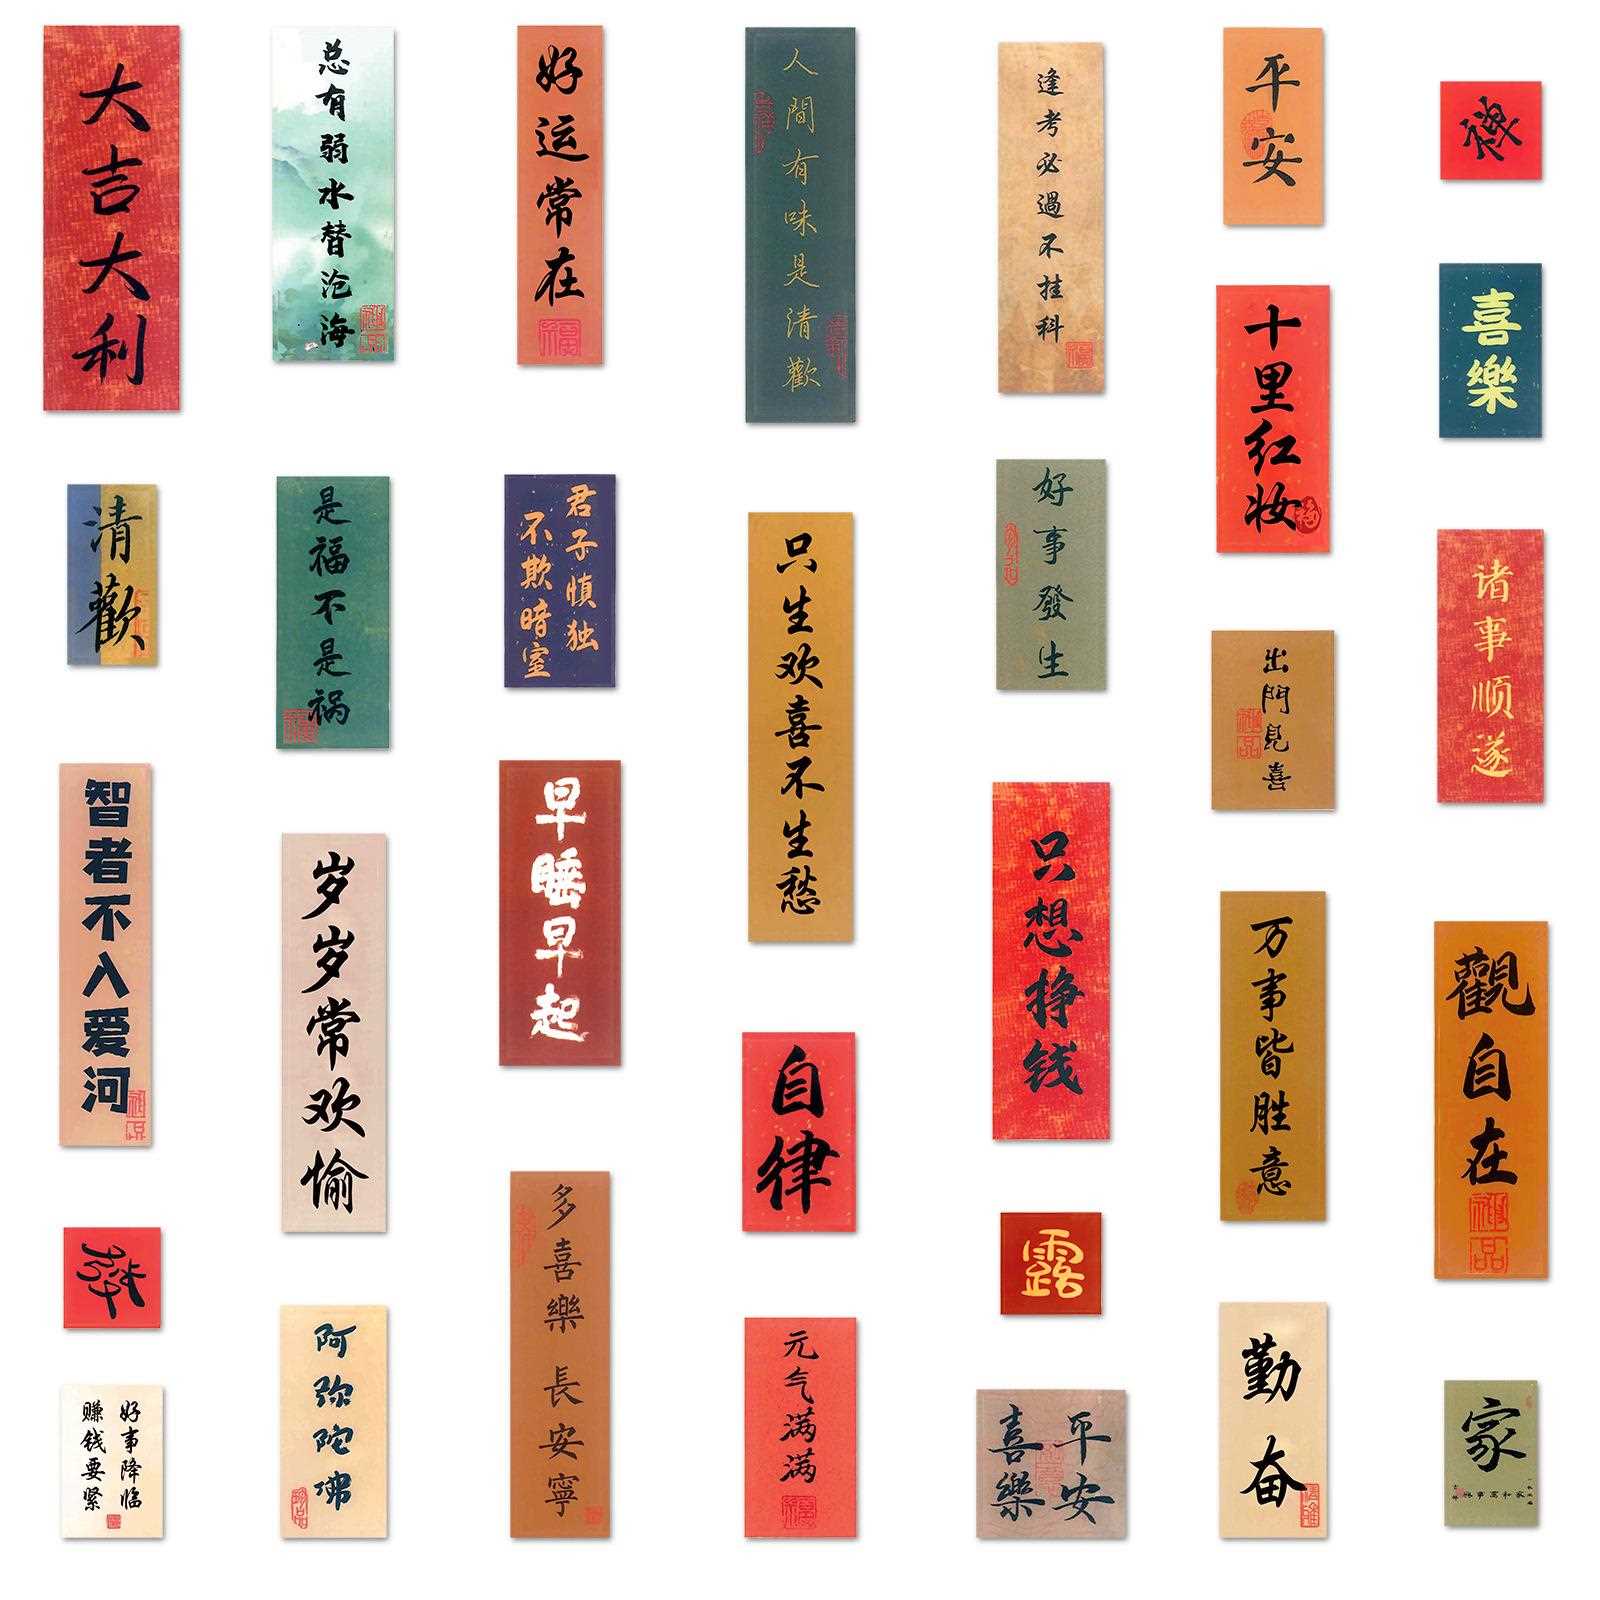 大吉大利
总有弱水替沧海
好运常在
人間有味是清歡
逢考必過不挂科
平安
禅
喜樂
十里红妆
清歡
是福不是祸
君子慎独
不欺暗室
只生欢喜不生愁
好事發生
诸事顺遂
出門見喜
智者不入爱河
岁岁常欢愉
早睡早起
只想挣钱
万事皆胜意
觀自在
自律
多喜樂長安寧
露
阿弥陀佛
元气满满
勤奋
好事降临
赚钱要紧
平安
喜樂
家
家和万事興